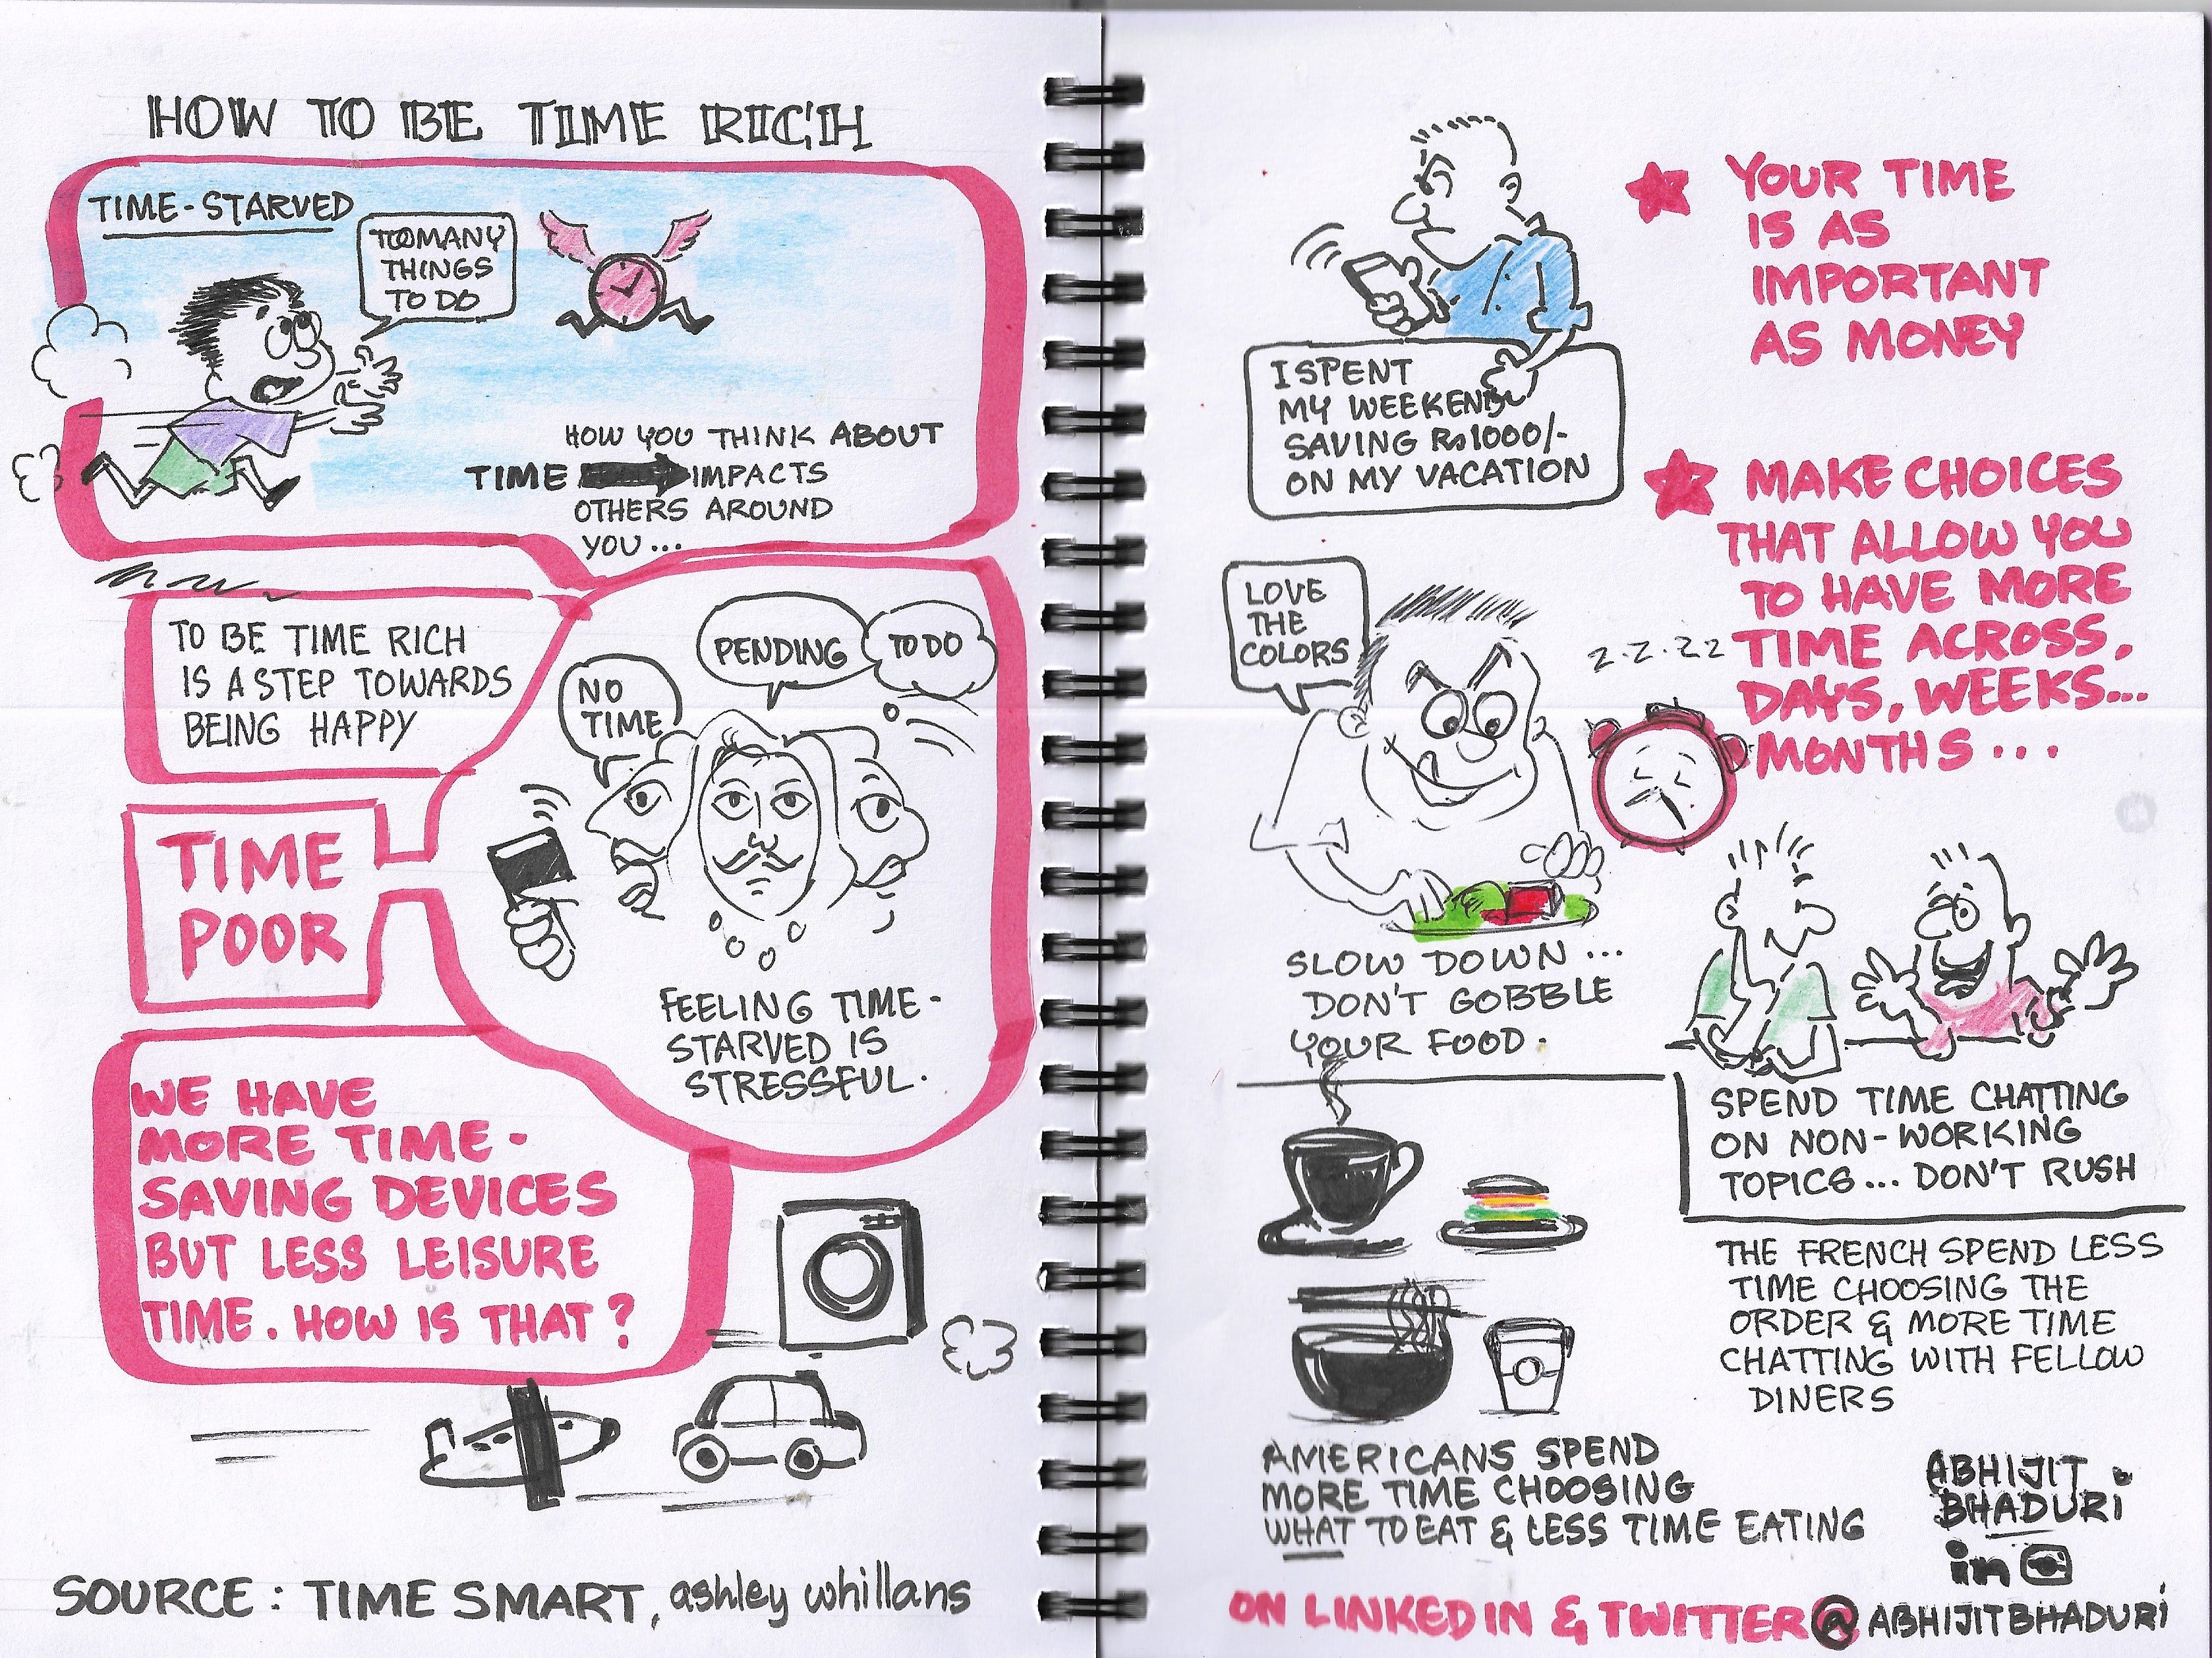 HOW TO BE TIME RICH
TIME-STARVED
TOO MANY
THINGS
TO DO
HOW YOU THINK ABOUT
TIME IMPACTS
OTHERS AROUND
YOU...
TO BE TIME RICH
IS A STEP TOWARDS
BEING HAPPY
NO
TIME
PENDING
TO DO
TIME
POOR
FEELING TIME-
STARVED IS
STRESSFUL.
WE HAVE
MORE TIME-
SAVING DEVICES
BUT LESS LEISURE
TIME. HOW IS THAT?
SOURCE: TIME SMART, ashley whillans
YOUR TIME
IS AS
IMPORTANT
AS MONEY
I SPENT
MY WEEKEND
SAVING Rs 1000/-
ON MY VACATION
MAKE CHOICES
THAT ALLOW YOU
TO HAVE MORE
TIME ACROSS,
DAYS, WEEKS...
MONTHS...
LOVE
THE
COLORS
z.z.zz
SLOW DOWN...
DON'T GOBBLE
YOUR FOOD.
SPEND TIME CHATTING
ON NON-WORKING
TOPICS... DON'T RUSH
THE FRENCH SPEND LESS
TIME CHOOSING THE
ORDER & MORE TIME
CHATTING WITH FELLOW
DINERS
AMERICANS SPEND
MORE TIME CHOOSING
WHAT TO EAT & LESS TIME EATING
ABHIJIT
BHADURI
in
ON LINKEDIN & TWITTER @ABHIJITBHADURI